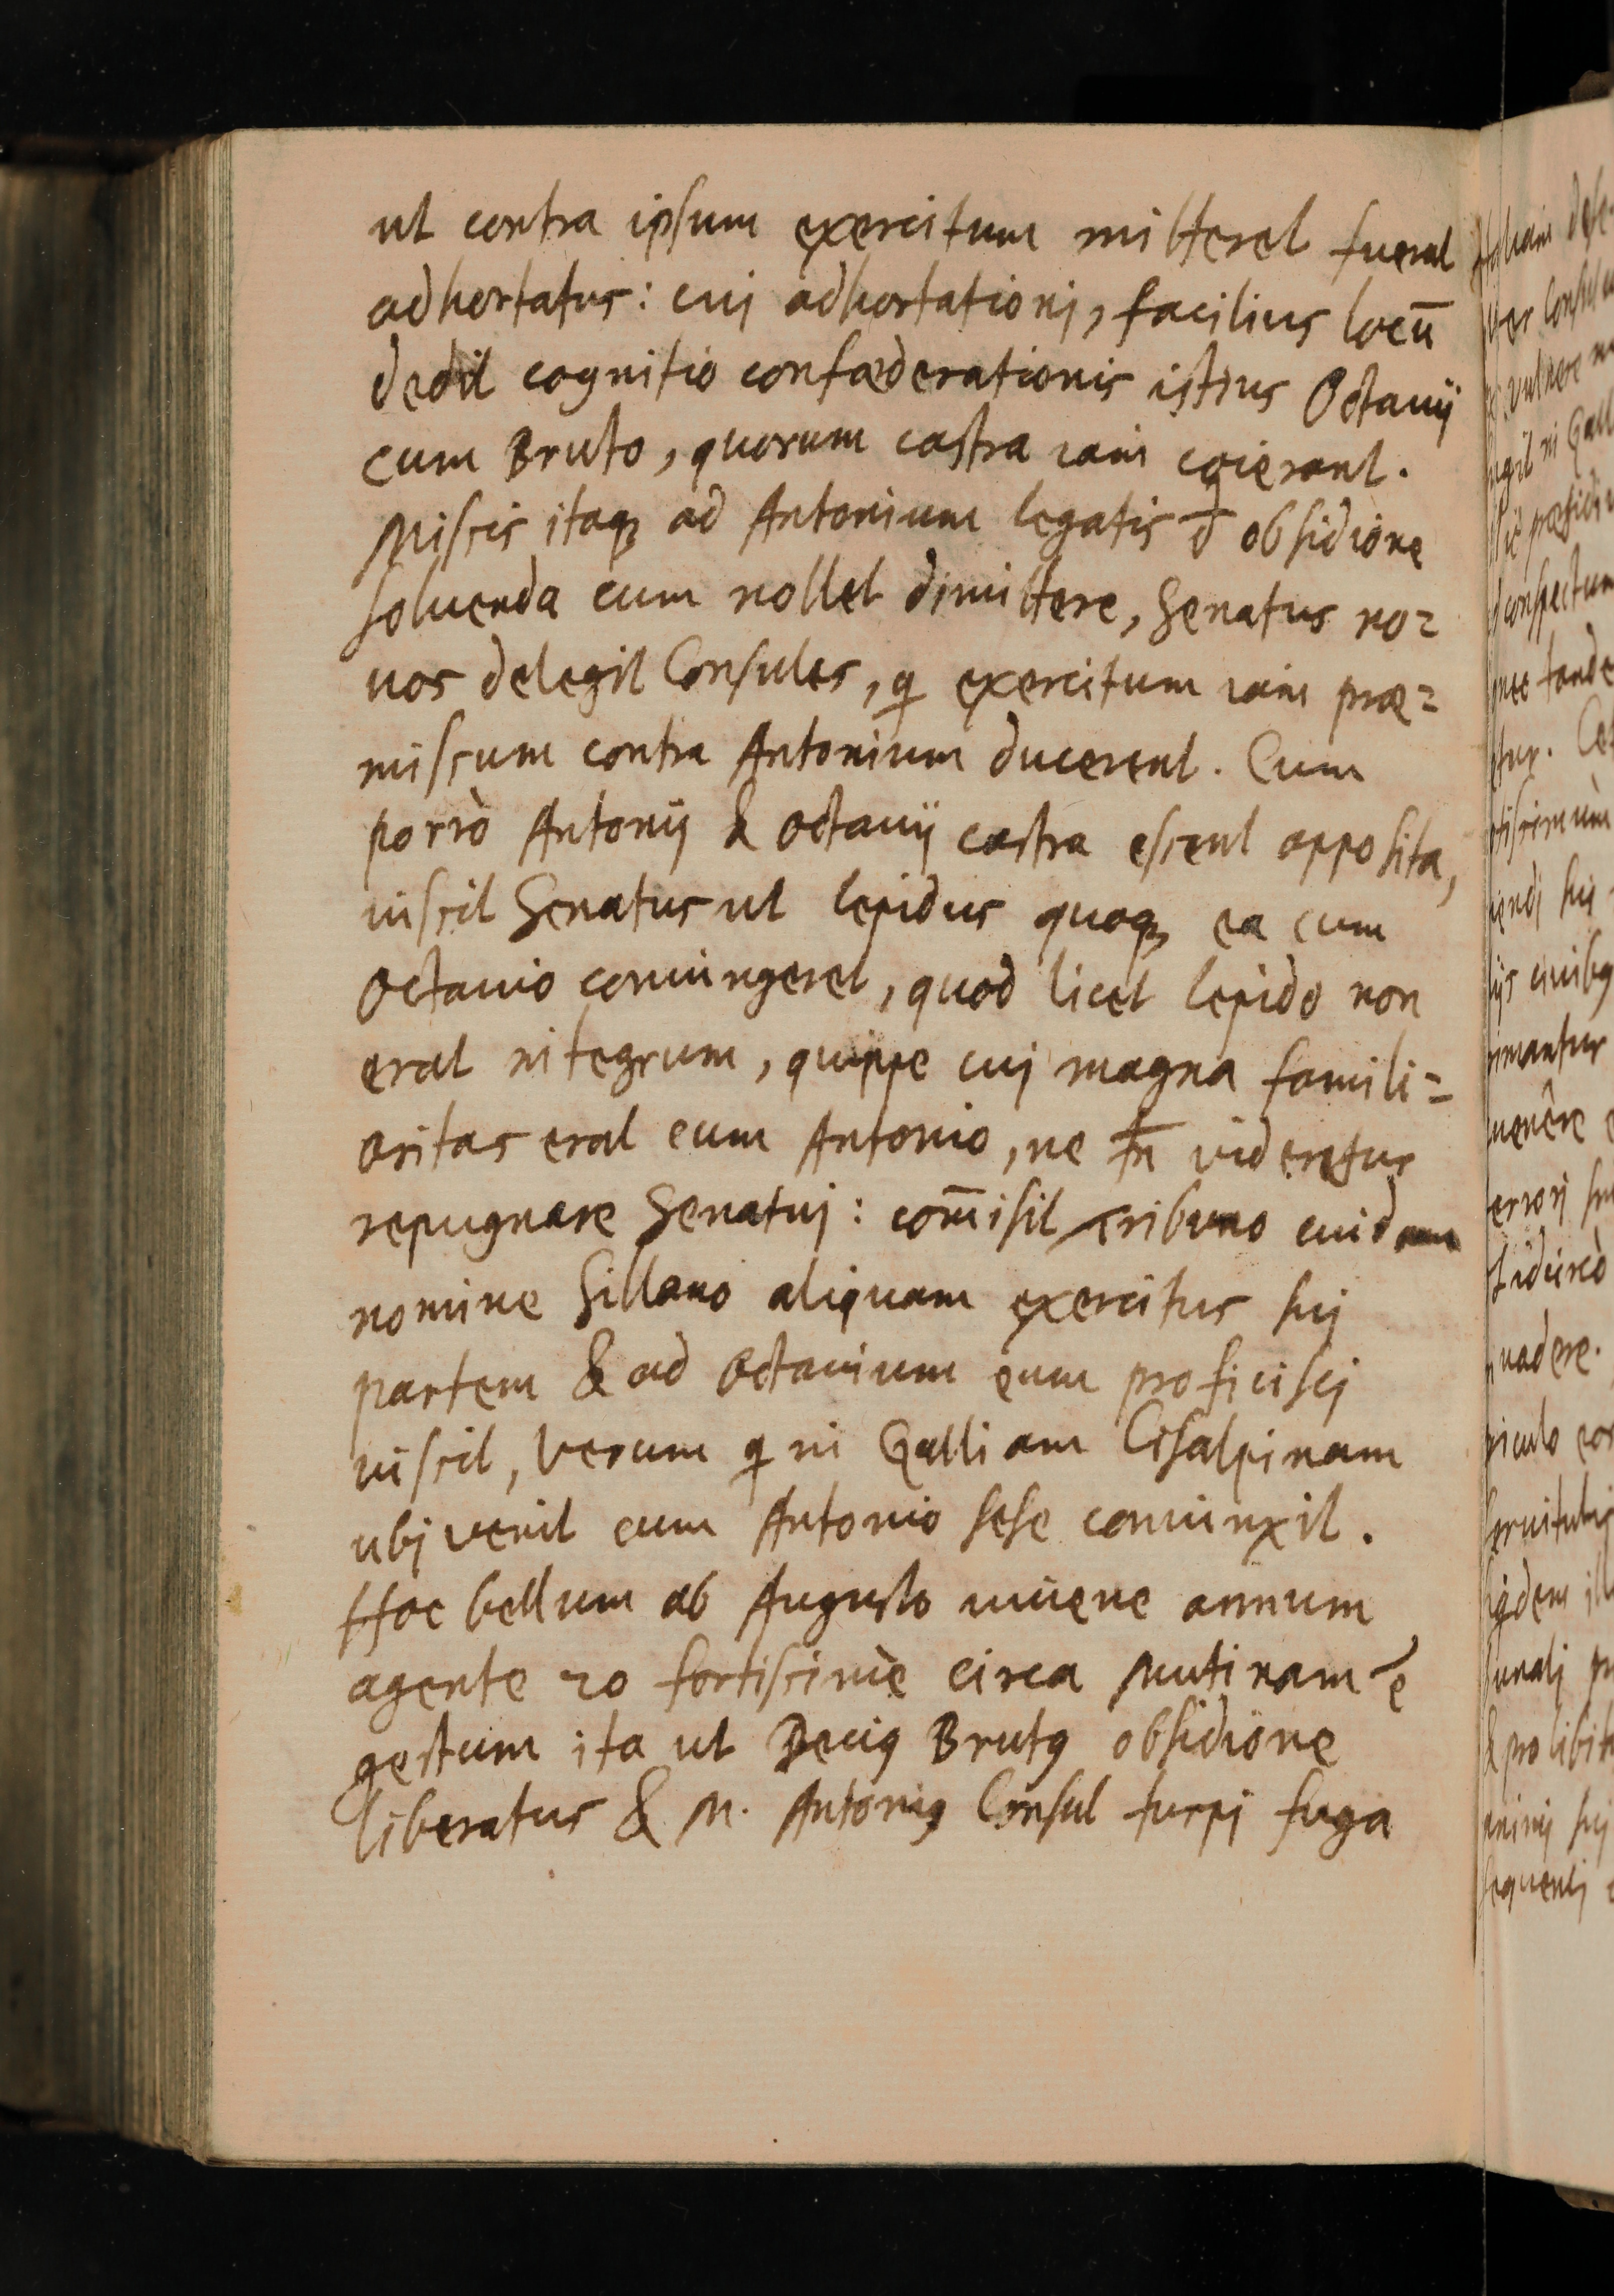 ut contra ipsum exercitum mitteret fuerat
adhortatus: cuj adhortationj, facilius locū
dedit cognitio confœderationis istius Octauij
cum Bruto, quorum castra iam coierant.
Missis itaqꝫ ad Antonium legatis đ obsidione
soluenda cum nollet dimittere, Senatus no=
uos delegit Consules, q exercitum iam præ=
missum contra Antonium ducerent. Cum
porrò Antonij & Octauij castra essent apposita,
iussit Senatus ut lepidus quoqꝫ ea cum
Octauio coniungeret, quod licet lepido non
erat integrum, quippe cuj magna famili=
aritas erat cum Antonio, ne tn̄ videretur
repugnare Senatuj: com̄isit tribuno cuidam
nomine Sillano aliquam exercitus suj
partem & ad Octauium eum proficiscj
iussit, Verum q in Galliam Cisalpinam
ubj venit cum Antonio sese coniunxit.
Hoc bellum ab Augusto iuuene annum
agente 20 fortissimè circa Mutinam ē
gestum ita ut Deciꝯ Brutꝯ obsidione
liberatus & M. Antoniꝯ Consul turpj fuga